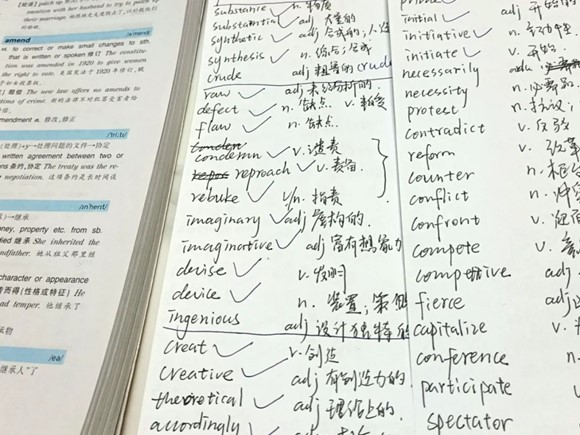 mention with her husband to try to patch up
their marriage.
amend
/ə'mend/
vt. to correct or make small changes to sth.
that is written or spoken 修订 The constitu-
tion was amended in 1920 to give women
the right to vote.
The new law offers no amends
time of crime.
mendment n. 修改,修正
/'tri:ti/
written agreement between two or
ns 条约,协定 The treaty was the re-
negotiation. 这项条约是长时间谈
/ɪn'herɪt/
→继承
oney, property etc. from sb.
fied 继承 She inherited the
ndfather. 他从祖父那里继
character or appearance
而得(性格或特征) He
ad temper. 他继承了
承物
/eə/
继承人"了
substance n. 物质
substantial adj 大量的
synthetic adj 合成的;人造
synthesis n. 综合;合成
crude adj 粗糙的 crude
raw adj 未经分析的
defect n. 缺点 v.
flaw n. 缺点
condemn v. 谴责
reproach v. 责备
rebuke v/n. 指责
imaginary adj 虚构的.
imaginative adj 富有想象力
devise v. 发明
device n. 装置;策略
ingenious adj 设计独特的
creat v. 创造
creative adj 有创造力的
theoretical adj 理论上的.
accordingly
initial adj 开始的
initiative n. 主动性
initiate v. 开始
necessarily adv.
necessity n. 必需品
protest n. 抗议;
contradict v. 反驳
reform v. 改革
counter n. 柜台
conflict n. 冲突
confront v. 面
compete v. 竞
competitive adj
fierce adj
capitalize v.
conference n.
participate v
spectator